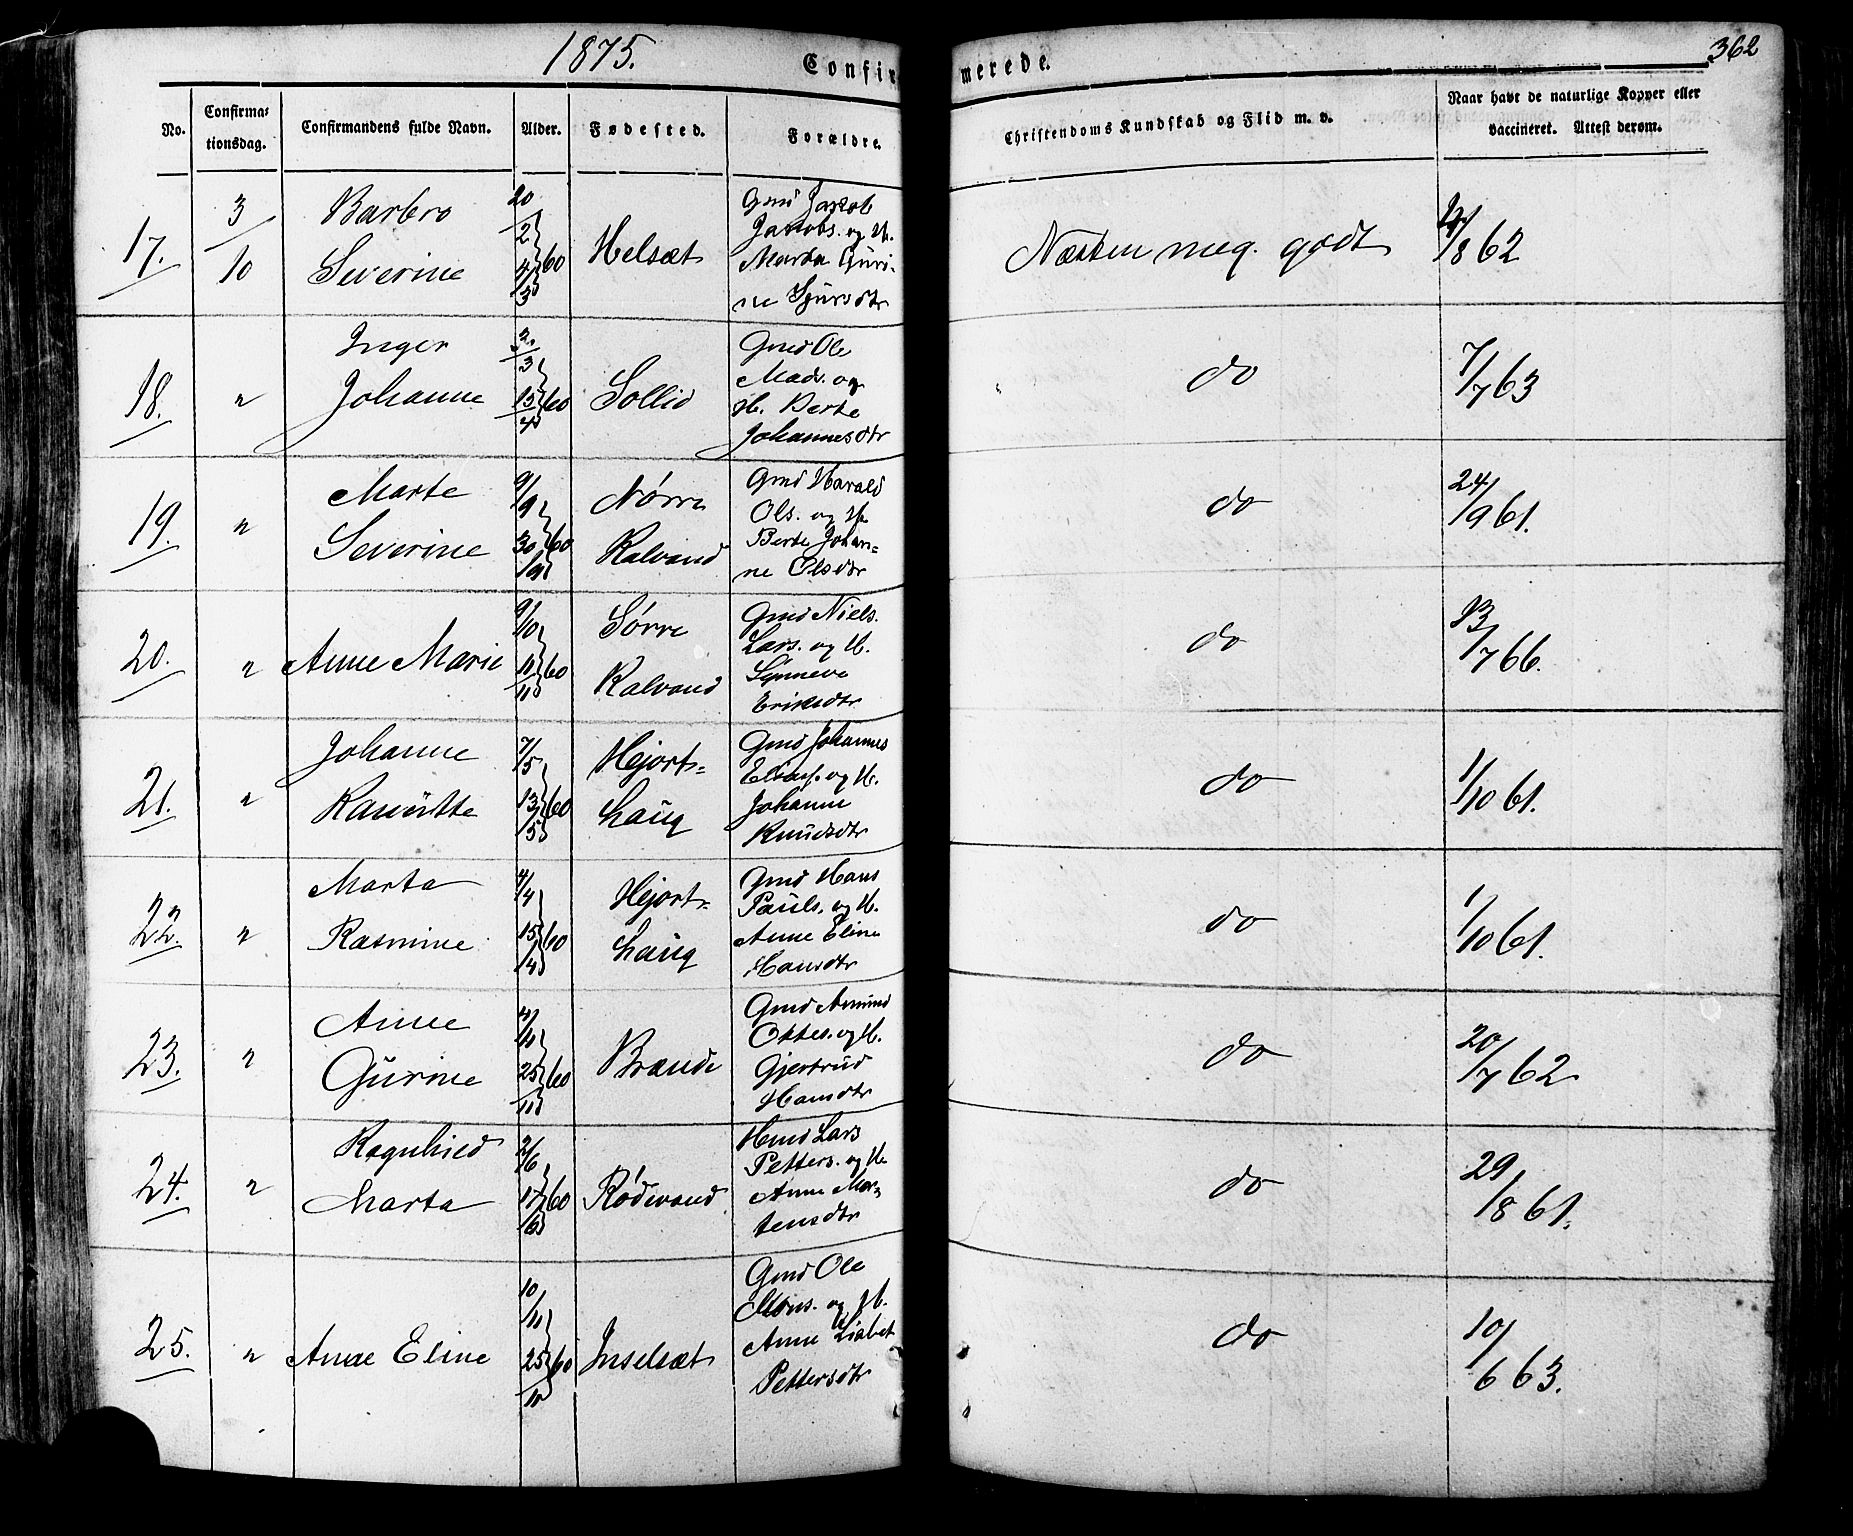 1875.
Confirmerede.
362
No.
Confirmationsdag.
Confirmandens fulde Navn.
Alder.
Fødested.
Forældre.
Christendoms Kundskab og Flid m. v.
Naar havt de naturlige Kopper eller
vaccineret. Attest derom.
17.
3/10
Barbro
Severine
20/2
4/3 60
Helsæt
Gmd Jakob
Jakobs. og H.
Marta Guri-
ne Sjursdtr
Næsten meg. godt
/8 62
18.
"
Inger
Johanne
/3
15/4 60
Sollid
Gmd Ole
Mads. og
H. Berte
Johannesdtr
do
7/7 63
19.
"
Marte
Severine
9/9
30/9 60
Nørre
Kalvand
Gmd Harald
Ols. og H.
Berte Johan-
ne Olsdtr
do
24/9 61.
20.
"
Anne Marie
9/10
11/11 60
Sørre
Kalvand
Gmd Niels
Lars. og H.
Synneva
Eriksdtr
do
13/7 66.
21.
"
Johanne
7/5
13/5 60
Hjorts-
haug
Gmd Johannes
og H.
Johanne
Knudsdtr
do
1/10 61.
22.
"
Marta
Rasmine
4/4
15/4 60
Hjorts-
haug
Gmd Hans
Pauls. og H.
Anne Eline
Hansdtr
do
1/10 61.
23.
"
Anne
Gurine
4/11
25/11 60
Brande
Gmd Asmund
Ottes. og H.
Gjertrud
Hansdtr
do
20/7 62
24.
"
Ragnhild
Marta
2/6
17/6 60
Rødvand
Hmd Lars
Petters. og H.
Anne Mor-
tensdtr
do
29/8 61.
25.
"
Anne Eline
10/11
25/11 60
Inselsæt
Gmd Ole
Mons. og H.
Anne Lisbet
Pettersdtr
do
10/6 63.